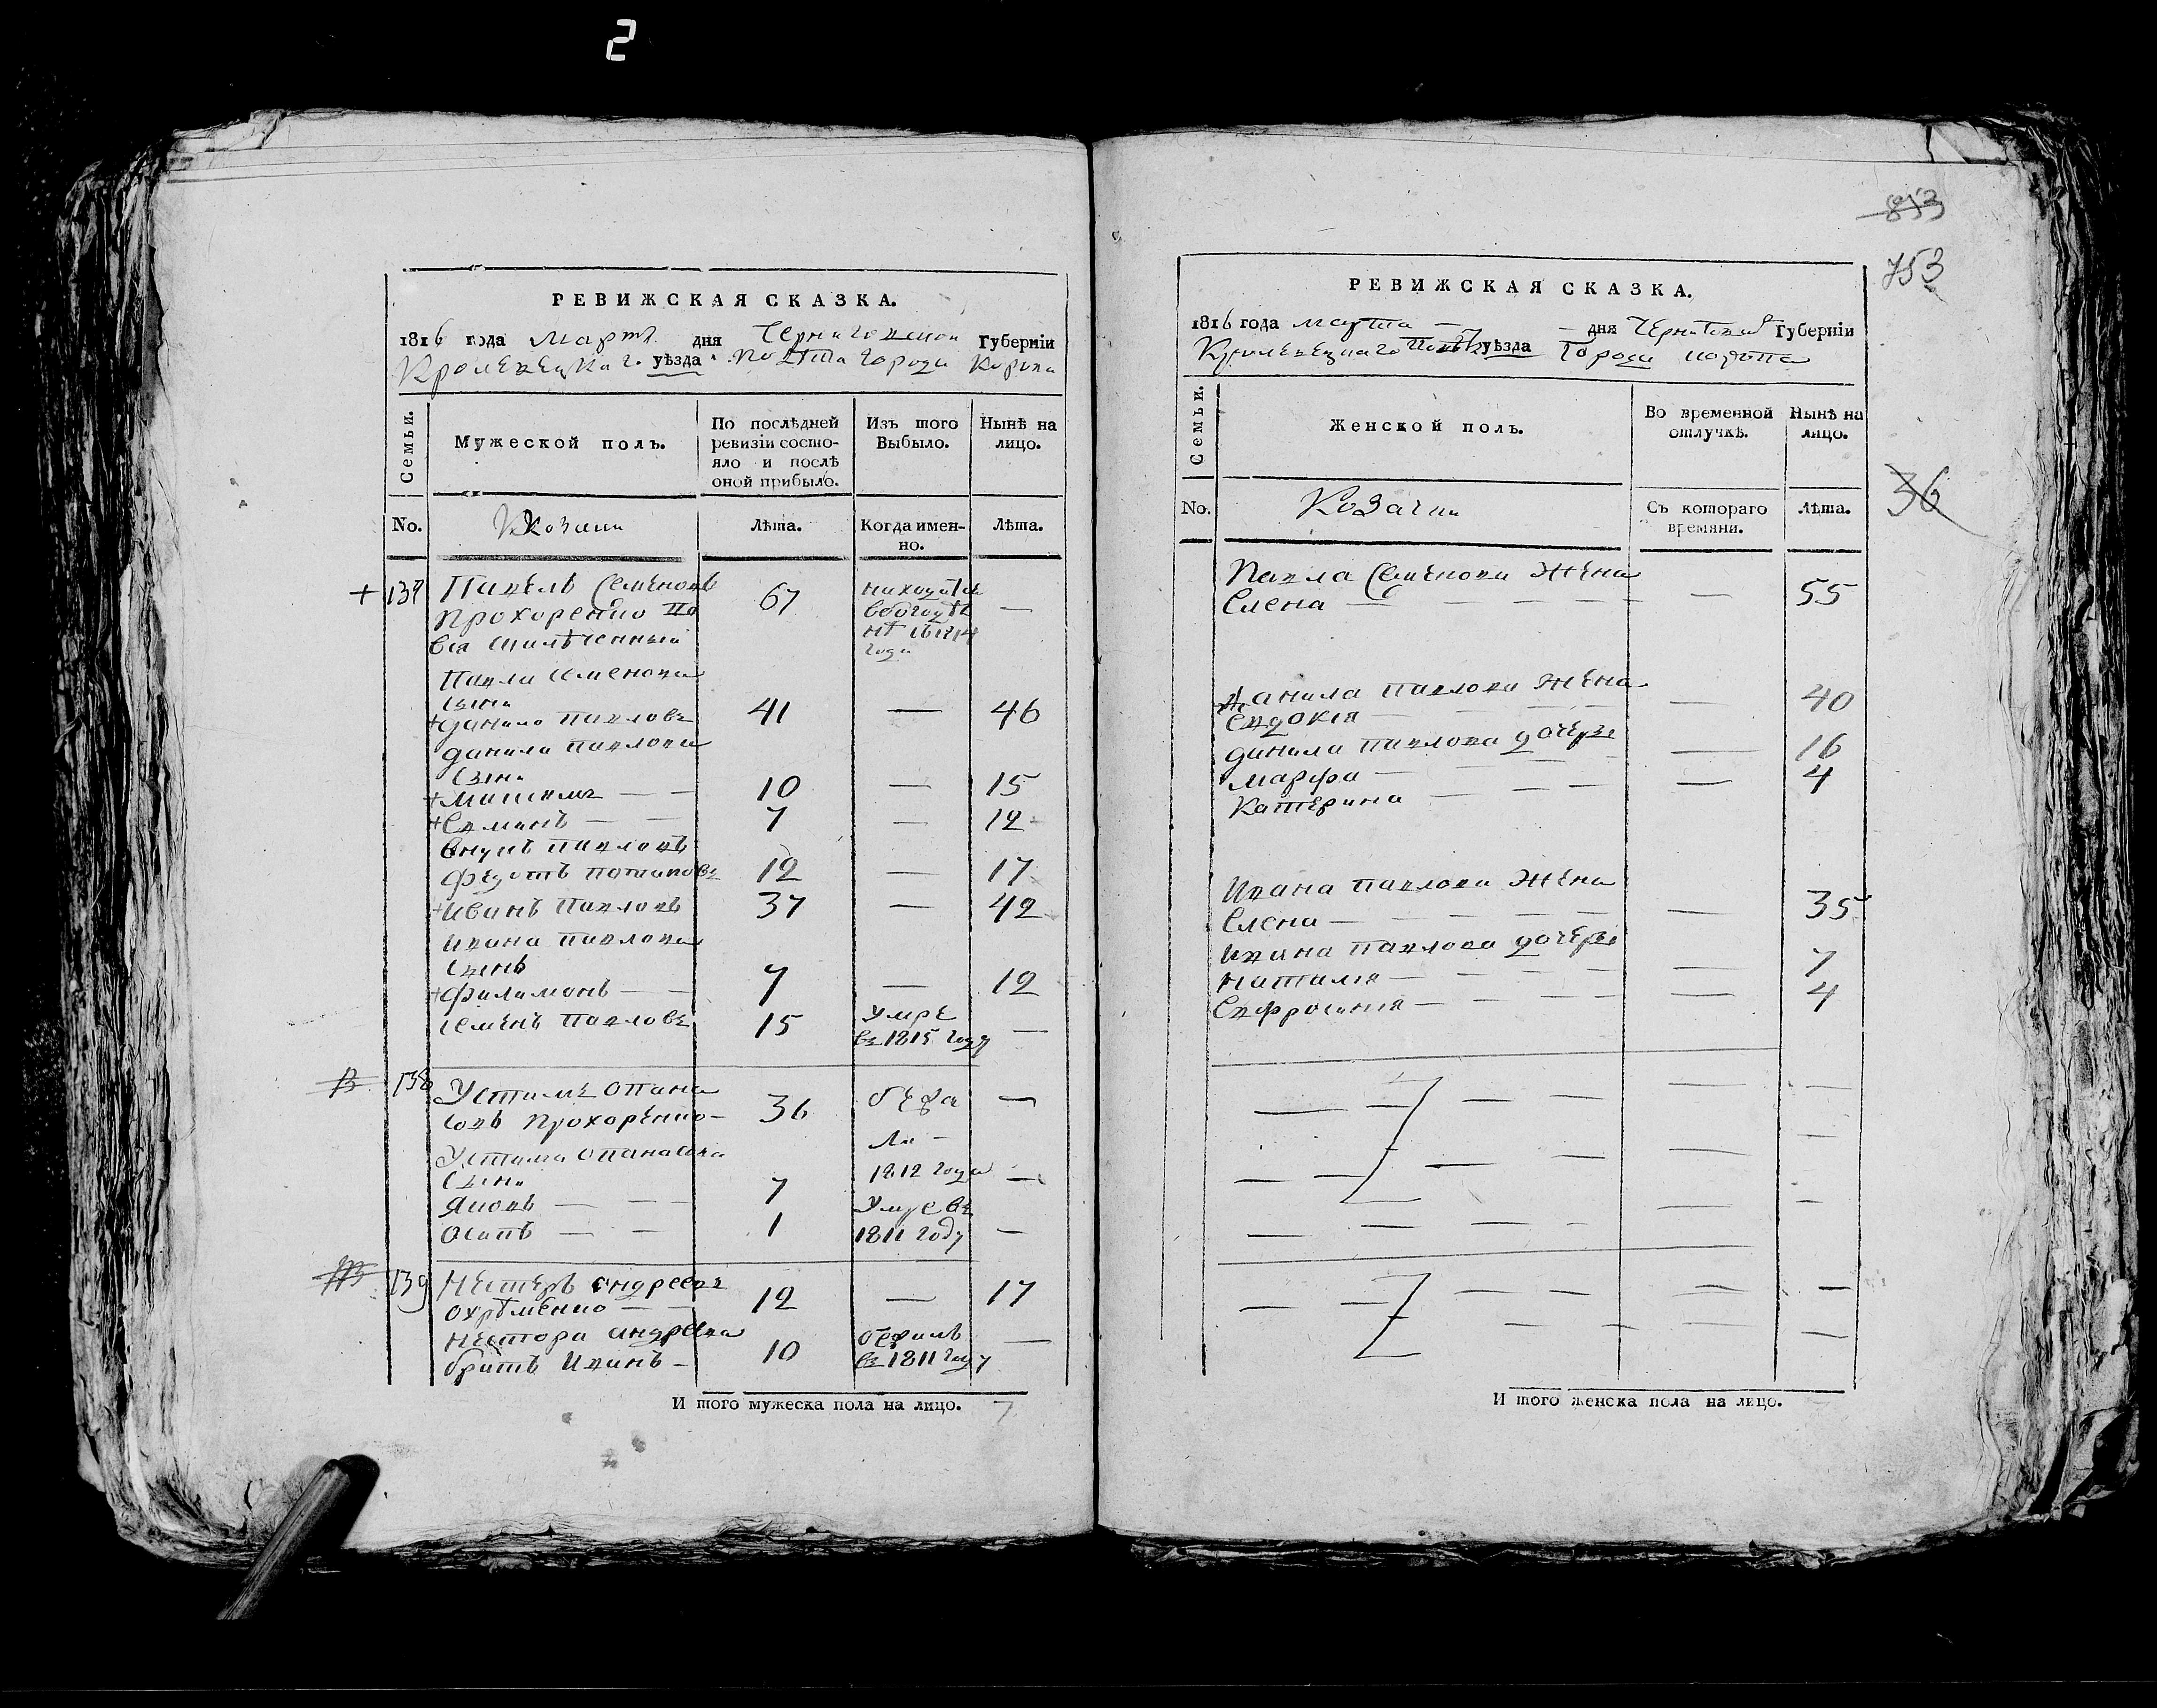 2
РЕВИЖСКАЯ СКАЗКА.
1816 года Март. дня Черниговской Губерніи
Кролевецкаго уѣзда повѣта города Коропа
Семьи.
Мужеской полъ.
По послѣдней
ревизіи состо-
яло и послѣ
оной прибыло.
Изъ того
Выбыло.
Нынѣ на
лицо.
No.
Козаки
Лѣта.
Когда имен-
но.
Лѣта.
+ 137 Павелъ Семеновъ
Прохоренко
67
находится
—
1814
года
Павла Семенова
сынъ
+ Данило Павловъ 41 — 46
Данила Павлова
сынъ
+ Максимъ — — 10 — 15
+ Романъ — — 7 — 12
внукъ Павловъ
Федотъ Потаповъ 12 — 17
+ Иванъ Павловъ 37 — 42
Ивана Павлова
сынъ
+ Филимонъ — — 7 — 12
Семенъ Павловъ 15 умре —
въ 1815 году
138 Устимъ Опана
совъ Прохоренко — 36 —
Устима Опанасова 1812 года
сынъ —
Яковъ — — 7 умре въ
Осипъ — — 1 1811 году —
139 Нестеръ Андреевъ
Охрѣменко — — 12 — 17
Нестора Андреева
братъ Иванъ — 10 —
въ 1811 году
И того мужеска пола на лицо. 7
853
753
РЕВИЖСКАЯ СКАЗКА.
1816 года марта — — дня Чернигов Губерніи
Кролевецкаго Повѣ уѣзда Города Коропа
Семьи.
Женской полъ.
Во временной
отлучкѣ.
Нынѣ на
лицо.
36
No.
Козачки
Съ котораго
времяни.
Лѣта.
Павла Семенова жена
Елена — — — — — 55
Данила Павлова жена
Евдокія — — — — 40
Данила Павлова дочери
Марфа — — — — 16
Катерина — — — — 4
Ивана Павлова жена
Елена — — — — — 35
Ивана Павлова дочери
Наталія — — — — — 7
Ефросинія — — — — — 4
И того женска пола на лицо.